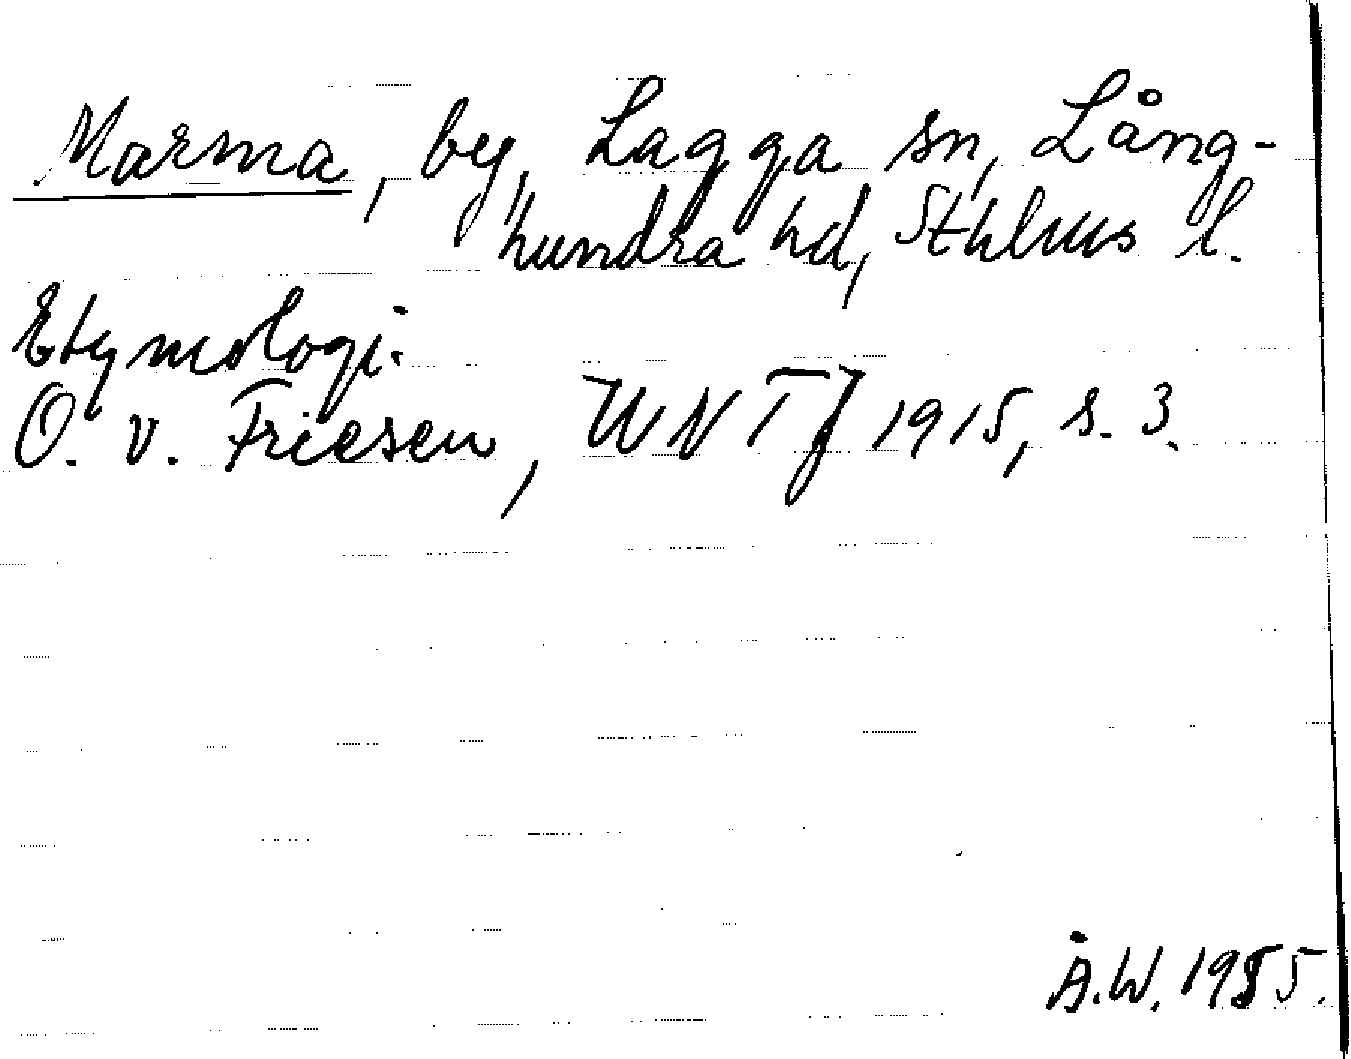 Marma, by, Lagga sn, Lång-
hundra hd, Sthlms l.
Etymologi.
O. v. Friesen, UNTf 1915, s. 3.
Å.W. 1955.